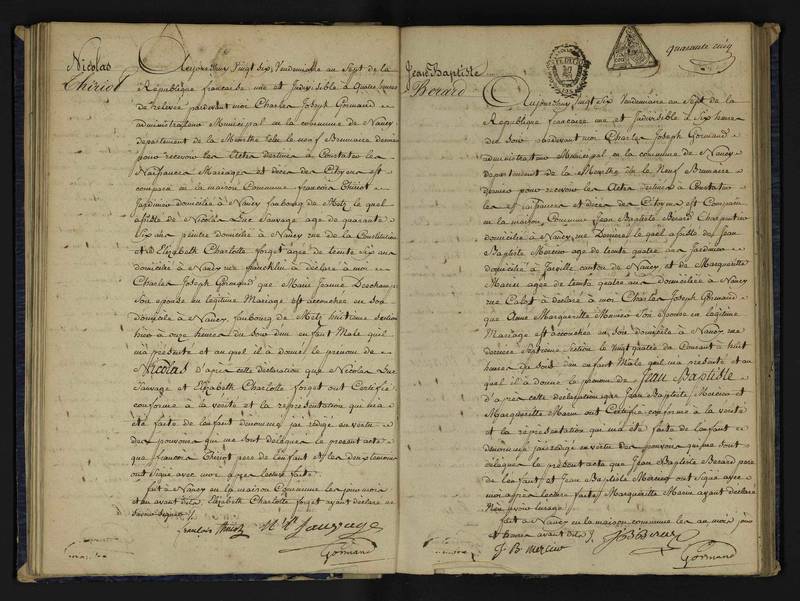 Nicolas
Thiriot
Aujourd'huy Vingt six Vendemiaire an Sept de la
République française une et Indivisible à quatre heures
de relevée pardevant moi Charles Joseph Gormand
administrateur Municipal en la commune de Nancy
departement de la Meurthe élu le neuf Brumaire dernier
pour recevoir les Actes destinés à Constater les
Naissances Mariages et décès des Citoyens est
comparu en la maison Commune francois Thiriot
Jardinier domicilié à Nancy faubourg de Metz le quel
assisté de Nicolas Luc Sauvage age de quarante
Six ans peintre domicilié à Nancy rue de la Constitution
et d'Elizabeth Charlotte forget agée de trente six ans
domiciliée à Nancy rue franchlin à déclaré à moi
Charles Joseph Gormand que Marie Jeanne Deschamps
Son epouse en legitime Mariage est accouchée en son
domicile à Nancy, faubourg de Metz huitième Section
hier à onze heures du Soir d'un enfant Male quil
m'a présenté et au quel il à donné le prenom de
Nicolas D'apres cette declaration que Nicolas Luc
Sauvage et Elizabeth Charlotte forget ont Certifié
conforme à la vérité et la représentation qui m'a
été faite de l'enfant denommé, j'ai rédigé en vertu
des pouvoirs qui me sont délégués le présent acte
que francois Thiriot pere de l'enfant et
ont signé avec moi apres lecture faite
fait à Nancy en la maison Commune les jour mois
et an avant dits Elizabeth Charlotte forget ayant déclaré ne
Savoir Signer
francois Thiriot N. L. Sauvage
Gormand
quarante cinq
Jean Baptiste
Berard
Aujourd'huy Vingt Six Vendemiaire an Sept de la
Republique francaise une et indivisible à Six heures
du Soir pardevant moi Charles Joseph Gormand
administrateur Municipal en la commune de Nancy
departement de la Meurthe élu le Neuf Brumaire
dernier pour recevoir les Actes destinés à Constater
les Naissances et décès des Citoyens est Comparu
en la maison Commune Jean Baptiste Berard Charpentier
domicilié à Nancy rue le quel assisté de Jean
Baptiste age de trente quatre ans Jardinier
domicilié à Jarville canton de Nancy et de Marguerite
Marin agée de trente quatre ans domiciliée à Nancy
rue Calot à déclaré à moi Charles Joseph Gormand
que Anne Marguerite Son Epouse en legitime
Mariage est accouchée en son domicile à Nancy rue
Section le Vingt quatre du Courant à huit
heures du Soir d'un enfant Male quil m'a présenté et au
quel il à donné le prenom de Jean Baptiste
d'apres cette declaration que Jean Baptiste et
Marguerite Marin ont Certifié conforme à la verité
et la réprésentation qui m'a été faite de l'enfant
denommé j'ai redigé en vertu des pouvoirs qui me sont
délégués le présent acte que Jean Baptiste Berard pere
de l'enfant et Jean Baptiste ont signé avec
moi apres lecture faite Marguerite Marin ayant déclaré
fait à Nancy en la maison commune les an mois jour
et heure avant dits
Gormand